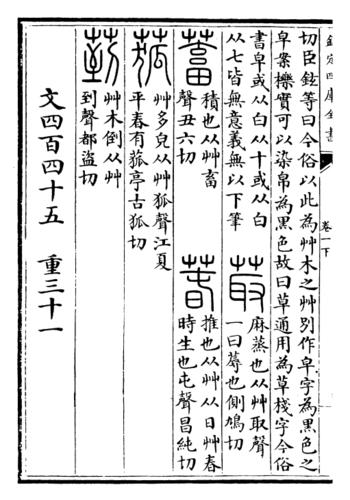 欽定四庫全書
卷一下
切臣鉉等曰今俗以此為艸木之艸別作皁字為黑色之
皁案櫟實可以染帛為黑色故曰草通用為草棧字今俗
書皁或从白从十或从白
从七皆無意義無以下筆
菆
麻蒸也从艸取聲
一曰蓐也側鳩切
蓄
積也从艸畜
聲丑六切
萅
推也从艸从日艸春
時生也屯聲昌純切
菰
艸多皃从艸狐聲江夏
平春有菰亭古狐切
菿
艸木倒从艸
到聲都盜切
文四百四十五　重三十一